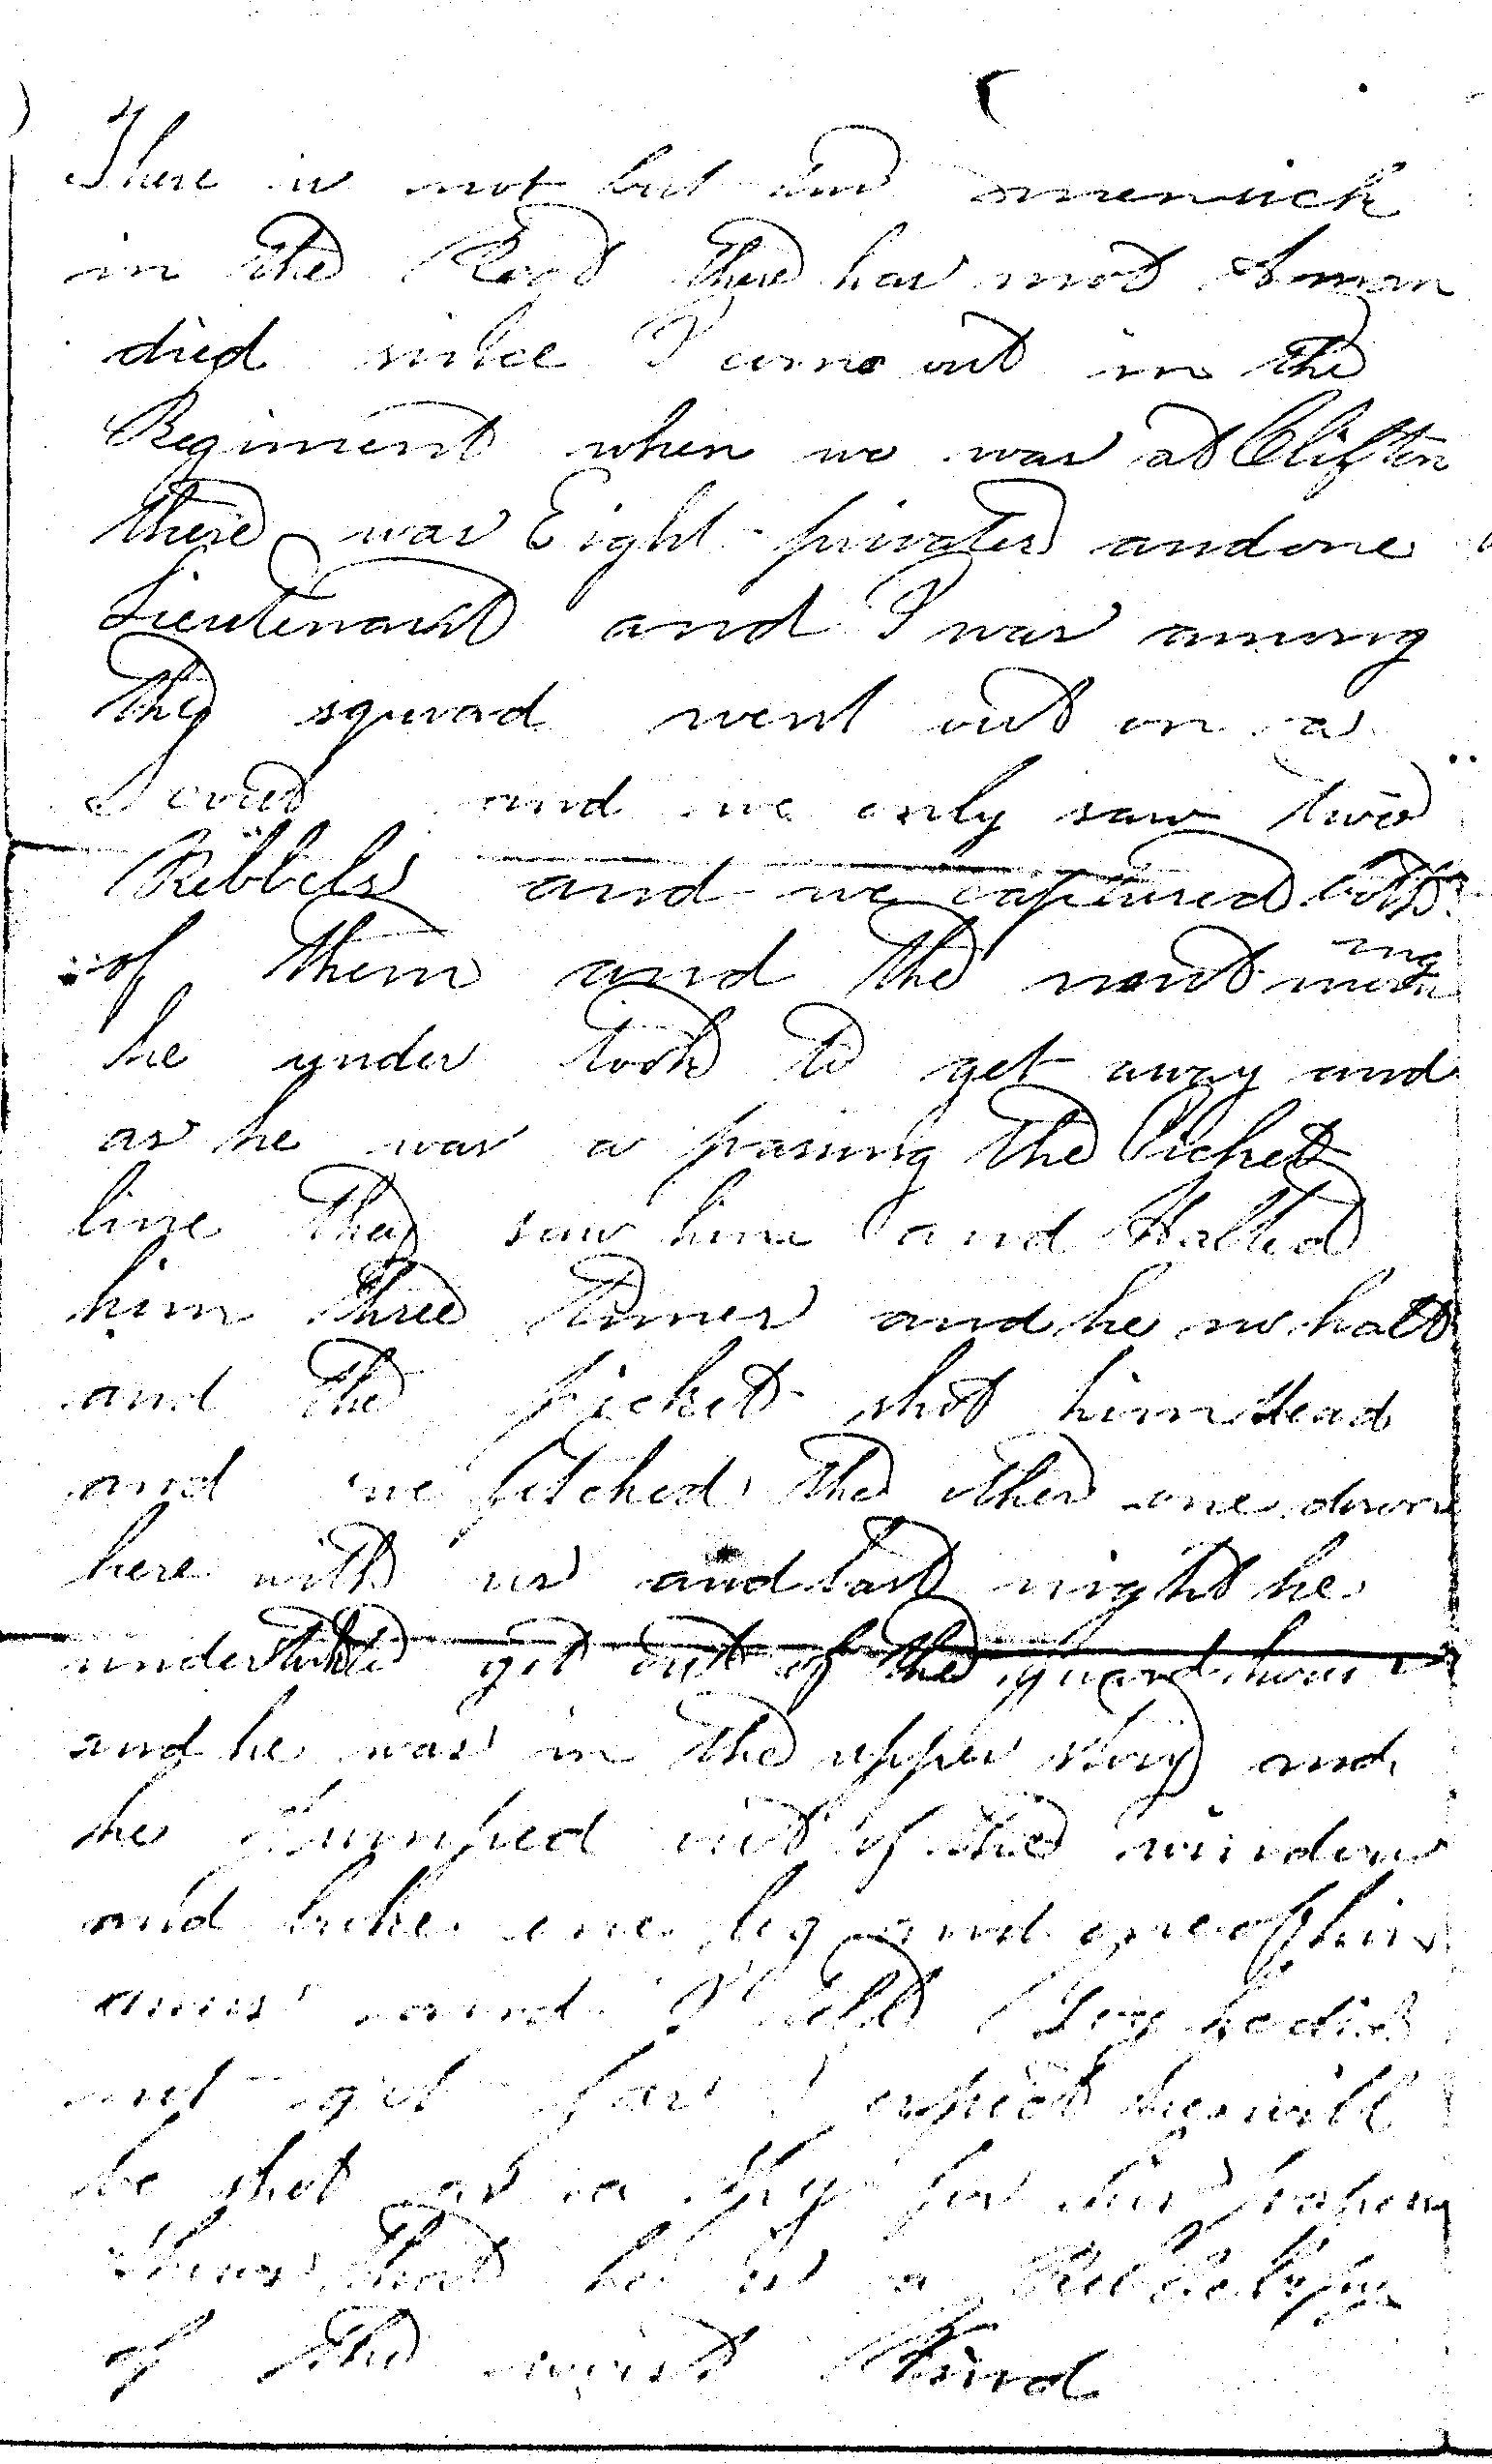 There is not but two men sick
in the Regt there has not A man
died since I came out in the
Regiment when we was at Clifton
there was Eight privates and one
Lieutenant and I was among
the squad went out on a
Scout and we only saw two
Rebbels and we captured both
of them and the next morning
he under took to get away and
as he was a pasing the Picket
line they saw him and Halted
him three times and he no halt
and the picket shot him dead
and we fetched the other one down
here with us and last night he
undertook to git out of the guard house
and he was in the upper story and
he Jumped out of the window
and broke one leg and one of his
arms and I tell you he did
not get far I expect he will
be shot as a spy for his papers
shows that he is a Rebbel spy
of the worst Kind